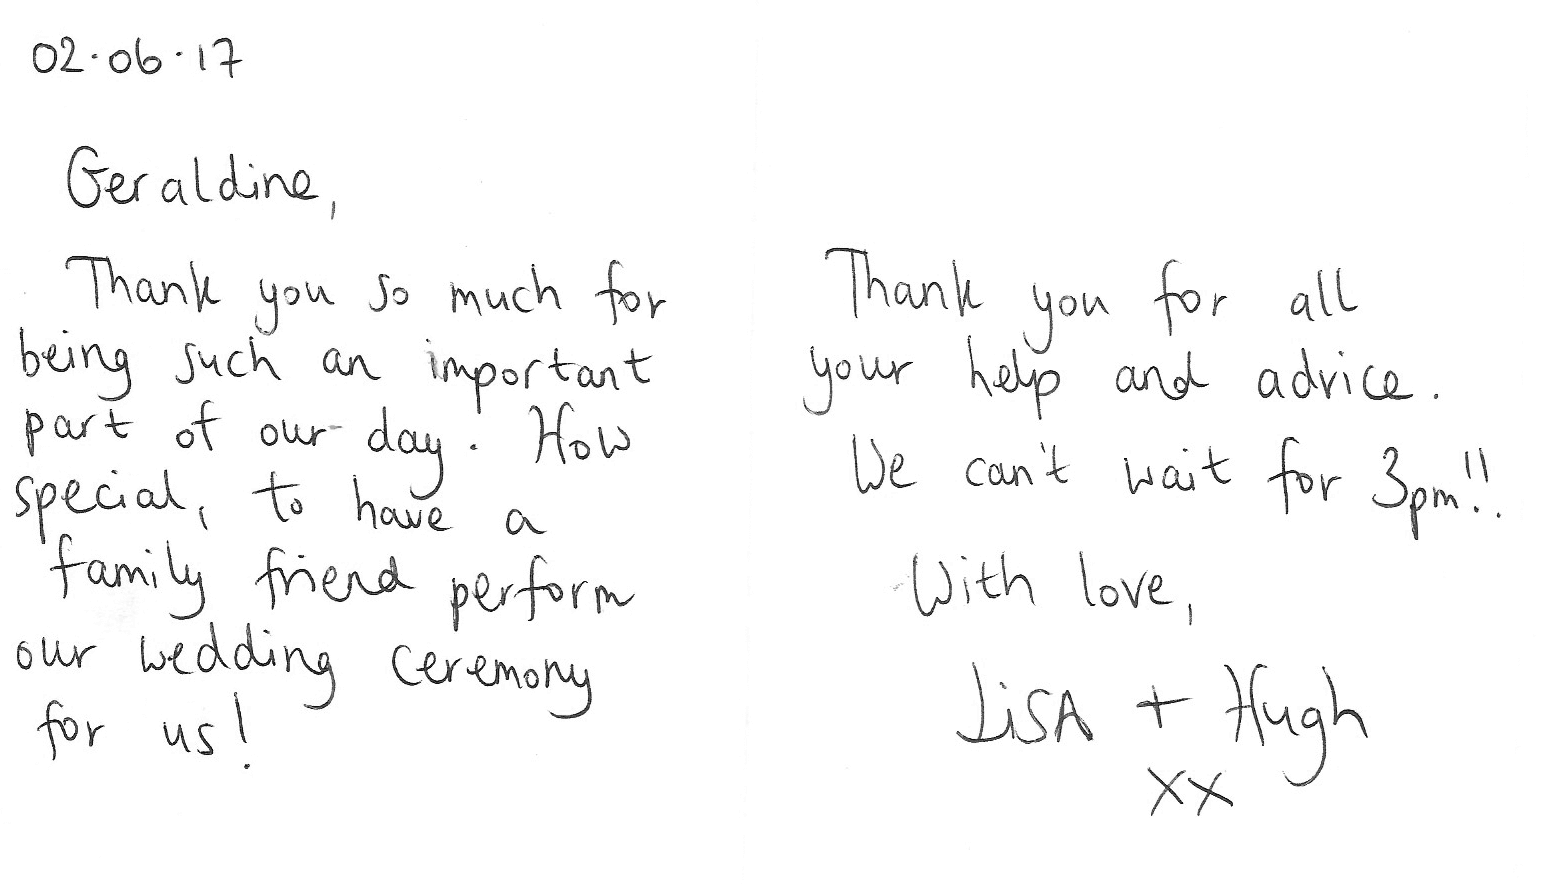 02.06.17
Geraldine,
Thank you so much for
being such an important
part of our day. How
special, to have a
family friend perform
our wedding ceremony
for us!
Thank you for all
your help and advice.
We can't wait for 3pm!!
With love,
LiSA + Hugh
xx